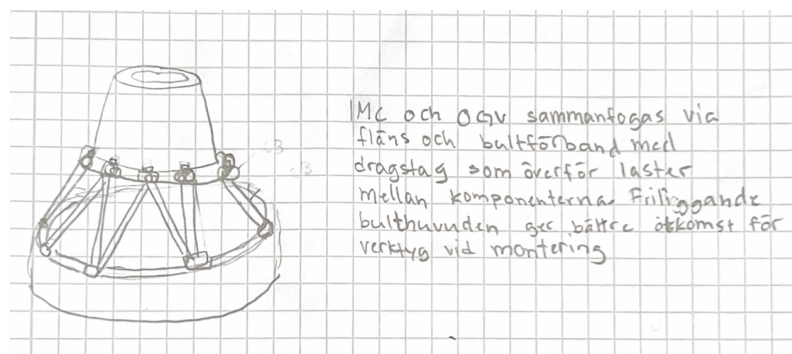 IMC och OGV sammanfogas via
fläns och bultförband med
dragstag som överför laster
mellan komponenterna. Friliggande
bulthuvuden ger bättre åtkomst för
verktyg vid montering